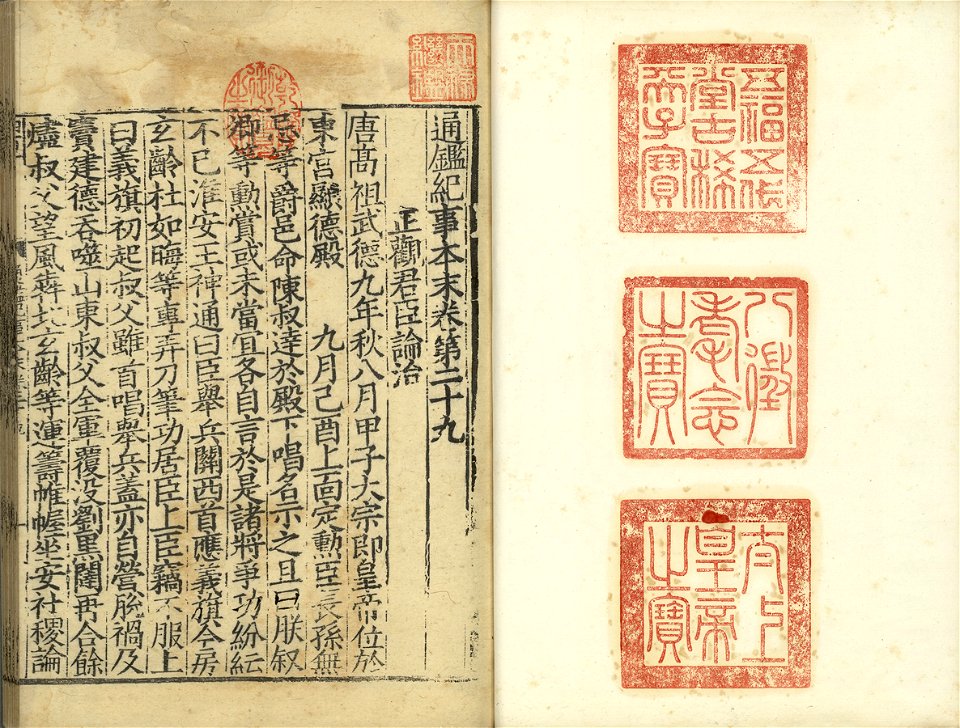 五福五代
堂古稀
天子寶
八徵
耄念
之寶
太上
皇帝
之寶
天祿
繼鑑
通鑑紀事本末卷第二十九
正觀君臣論治
唐高祖武德九年秋八月甲子大宗即皇帝位於
東宮顯德殿　九月己酉上面定勳臣長孫無
忌等爵邑命陳叔達於殿下唱名示之且曰朕叙
卿等勳賞或未當宜各自言於是諸將爭功紛紜
不已淮安王神通曰臣舉兵關西首應義旗今房
玄齡杜如晦等專弄刀筆功居臣上臣竊不服上
曰義旗初起叔父雖首唱舉兵蓋亦自營脫禍及
竇建德吞噬山東叔父全軍覆没劉黑闥再合餘
燼叔父望風犇北玄齡等運籌帷幄坐安社稷論